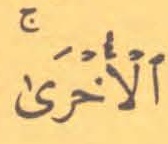 ٱلۡأُخۡرَىٰۚ